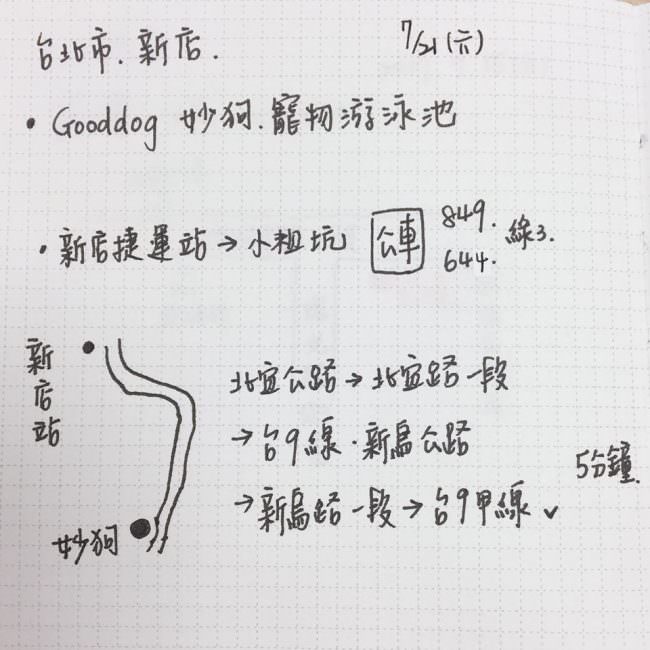 台北市.新店.
7/21(六)
• Gooddog 妙狗.寵物游泳池
• 新店捷運站→小粗坑 公車 849. 644. 綠3.
新店站
北宜公路→北宜路一段
→台9線.新烏公路
→新烏路一段→台9甲線✓
5分鐘.
妙狗